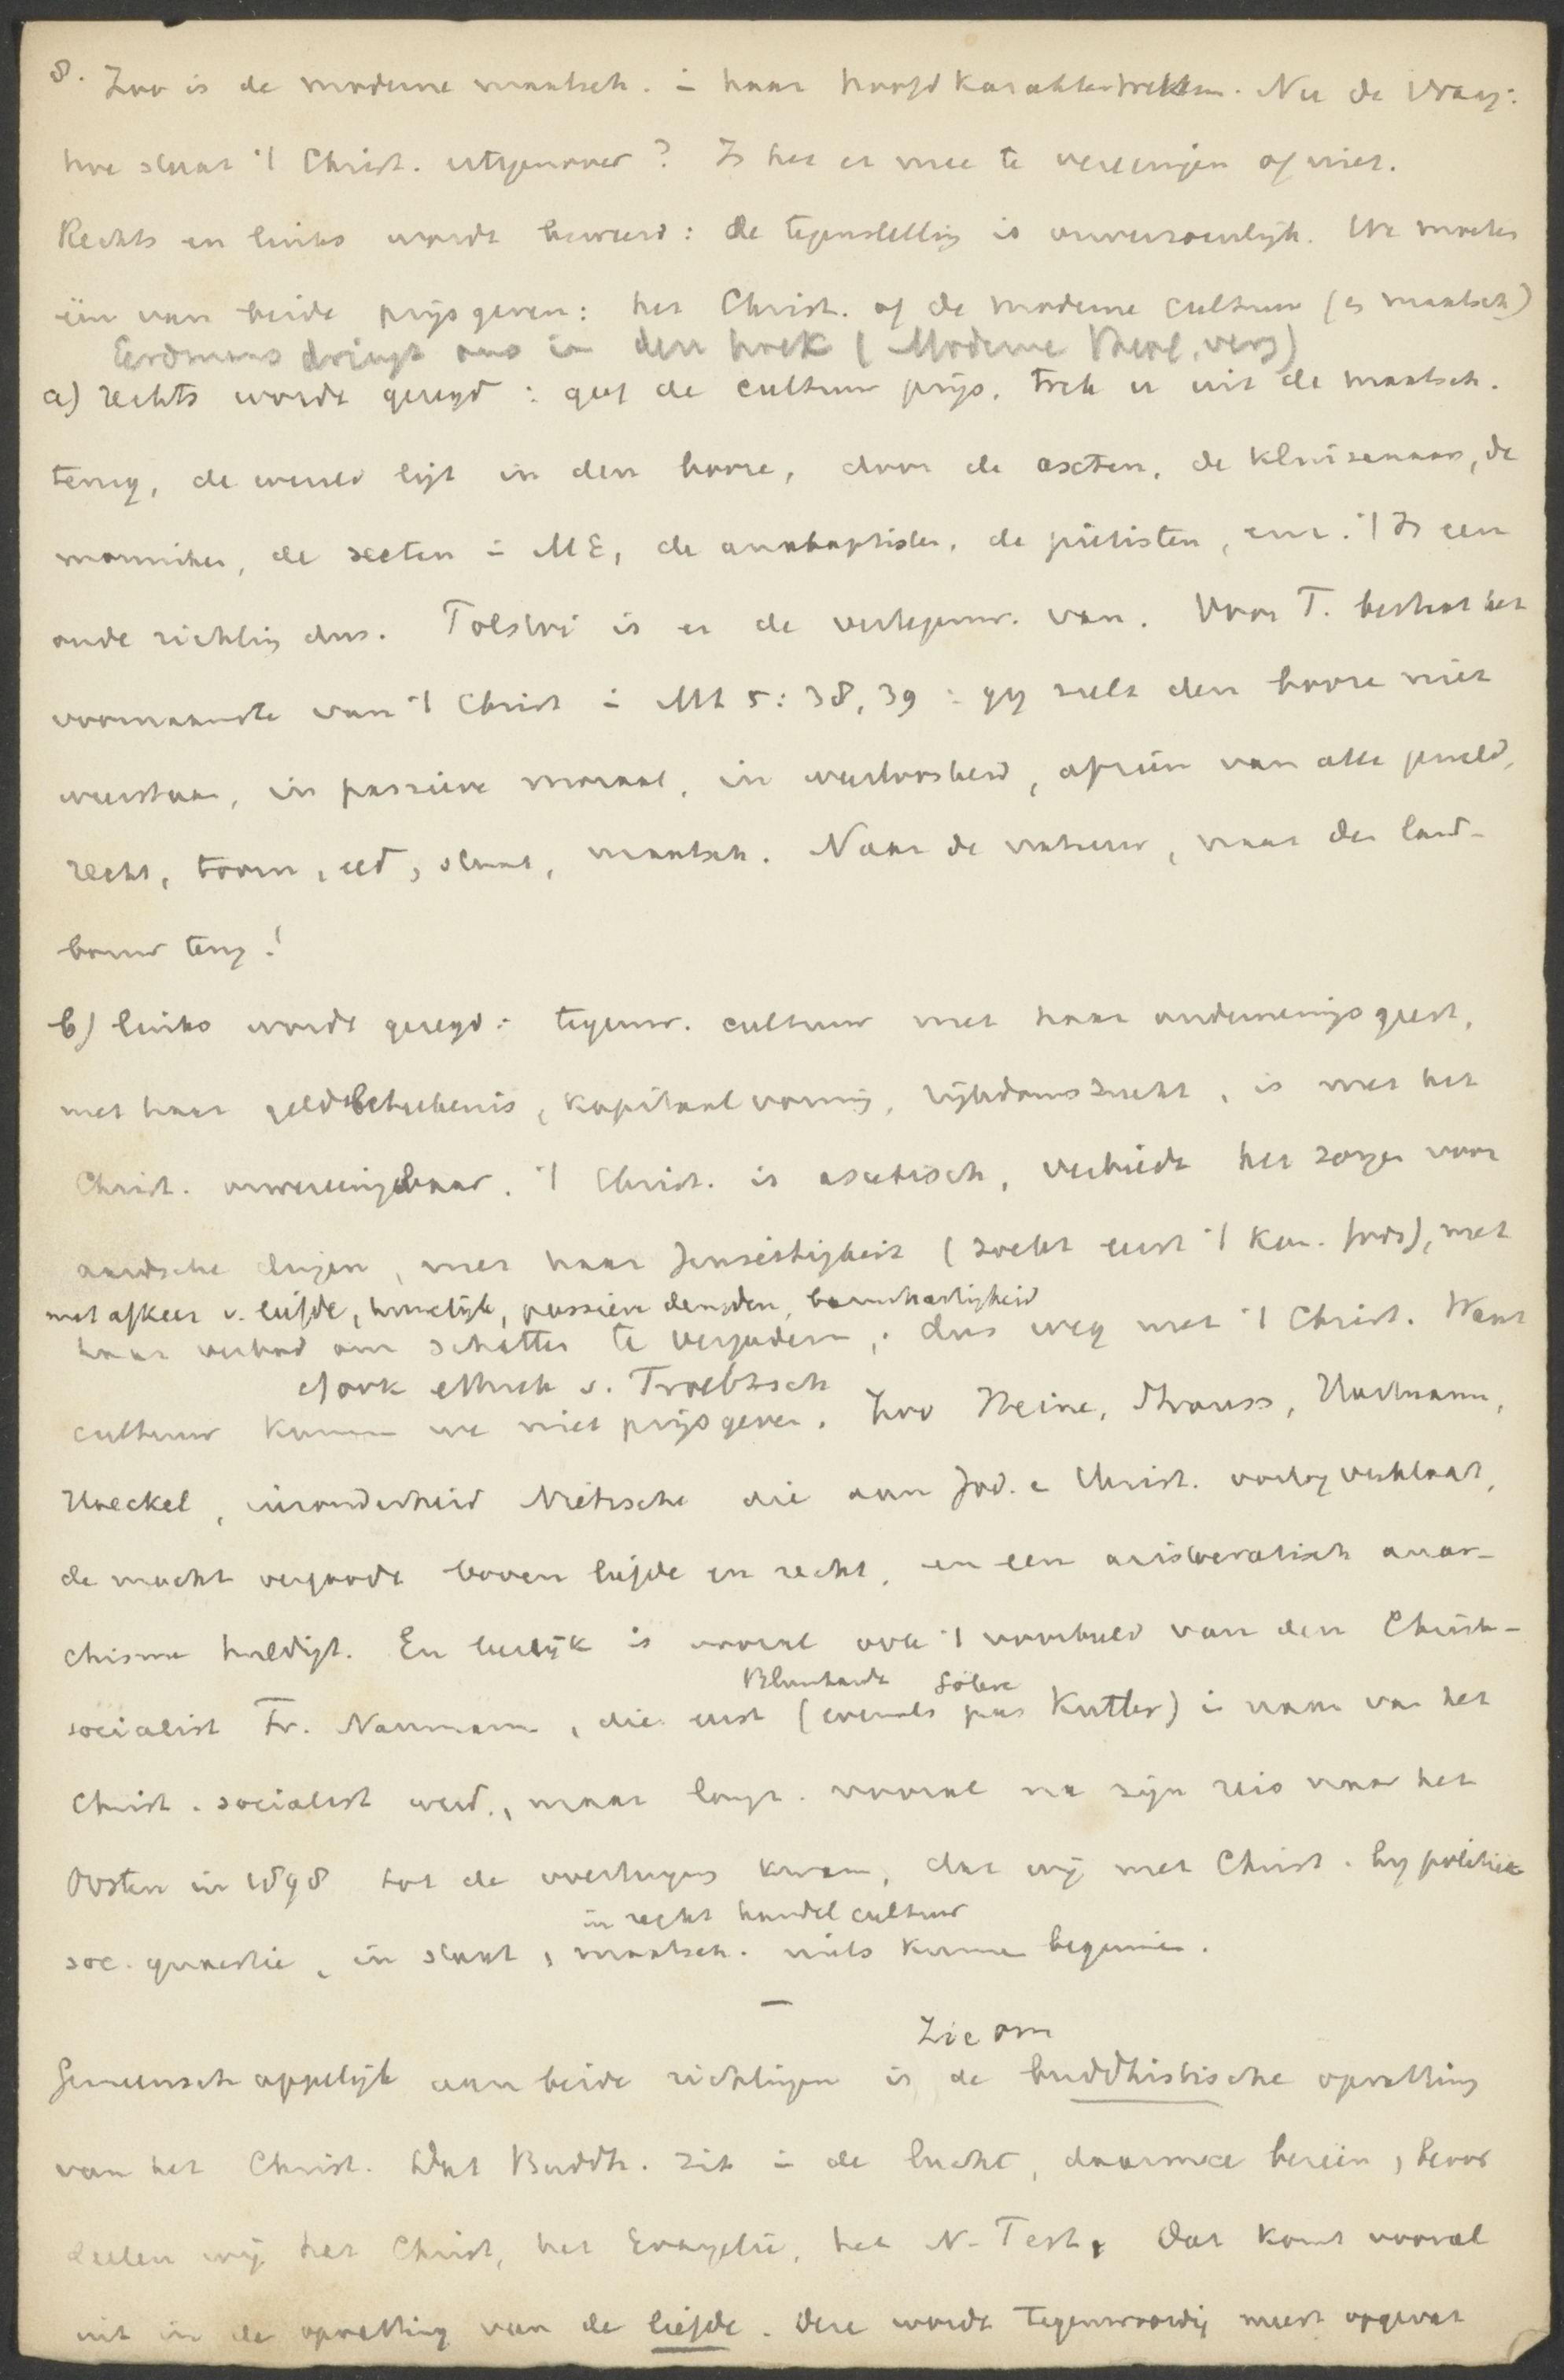 8. Zoo is de moderne maatsch. in haar hoofdkaraktertrekken. Nu de vraag:
hoe staat 't Christ. er tegenover? Is het er mee te vereenigen of niet.
Rechts en links wordt beweerd: de tegenstelling is onverzoenlijk. We moeten
één van beide prijsgeven: het Christ. of de moderne cultuur (en maatsch)
Eerdmans dringt ons in den hoek (Moderne Theol. verg)
a) rechts wordt gezegd: geef de cultuur prijs, trek u uit de maatsch.
terug, de wereld ligt in den booze, door de asceten, de kluizenaars, de
monniken, de secten in ME, de anabaptisten, de piëtisten, enz. 't Is een
oude richting dus. Tolstoi is er de vertegenw. van. Voor T. bestaat het
voornaamste van 't Christ in Mt 5:38,39: gij zult den booze niet
weerstaan, in passieve moraal, in weerloosheid, afzien van alle geweld,
recht, toorn, eed, staat, maatsch. Naar de natuur, naar den land-
bouw terug!
b) links wordt gezegd: tegenw. cultuur met haar ondernemingsgeest,
met haar geldbeteekenis, kapitaalvorming, rijkdomszucht, is met het
Christ. onvereenigbaar. 't Christ. is ascetisch, verbiedt het zorgen voor
aardsche dingen, met haar Jenseitigkeit (zoekt eerst 't Kon. Gods), met
met afkeer v. liefde, huwelijk, passieve deugden, barmhartigheid
haar verbod om schatten te vergaderen,. dus weg met 't Christ. Want
cf ook Ethik v. Troeltsch
cultuur kunnen we niet prijsgeven. Zoo Heine, Strauss, Hartmann,
Haeckel, inzonderheid Nietzsche die aan Jod. en Christ. oorlog verklaart,
de macht vergoodt boven liefde en recht, en een aristocratisch anar-
chisme huldigt. En leerlijk is vooral ook 't voorbeeld van den Christ-
Blumhardt Göhre
socialist Fr. Naumann, die eerst (evenals pas Kutter) in naam van het
Christ. socialist werd, maar langz. vooral na zijn reis naar het
Oosten in 1898 tot de overtuiging kwam, dat wij met Christ. bij politiek
in recht handel cultuur
soc. quaestie, in staat, maatsch. niets kunnen beginnen.
—
Zie om
Gemeenschappelijk aan beide richtingen is de buddhistische opvatting
van het Christ. Dat Buddh. zit in de lucht, daarmee bezien, beoor
deelen wij het Christ, het Evangelie, het N. Test. Dat komt vooral
uit in de opvatting van de liefde. Deze wordt tegenwoordig meest opgevat